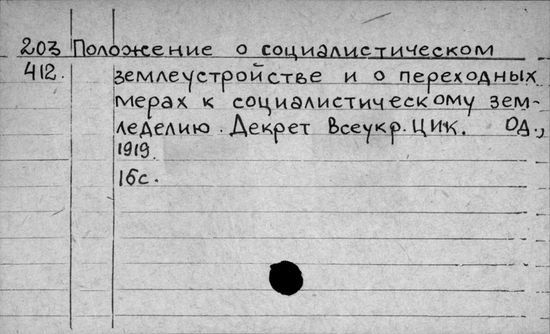 203 Положение о социалистическом
412. землеустройстве и о переходных
мерах к социалистическому зем-
леделию. Декрет Всеукр. ЦИК. Од.,
1919.
16с.